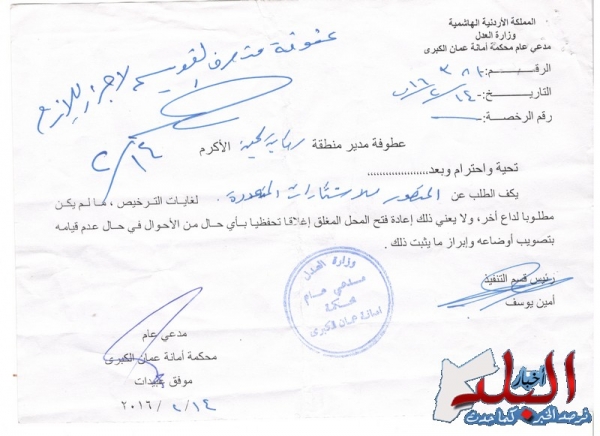 المملكة الأردنية الهاشمية
وزارة العدل
مدعي عام محكمة أمانة عمان الكبرى
الرقـــــــم:
التاريـــخ:
رقم الرخصـة:
عطوفة متصرف
٢/١٤
عطوفة مدير منطقة الأكرم
تحية واحترام وبعد....................
يكف الطلب عن المنظور للاستشارات المتعددة لغايات الترخيص، ما لم يكن
مطلوبا لداع أخر، ولا يعني ذلك إعادة فتح المحل المغلق إغلاقا تحفظيا بأي حال من الأحوال في حال عدم قيامه
بتصويب أوضاعه وإبراز ما يثبت ذلك .
رئيس قسم التنفيذ
أمين يوسف
وزارة العدل
مدعي عام
محكمة
امانة عمان الكبرى
مدعي عام
محكمة أمانة عمان الكبرى
موفق عبيدات
٢٠١٦/ ٢/١٤
أخبار
البلد
نرصد الخبر كما حدث